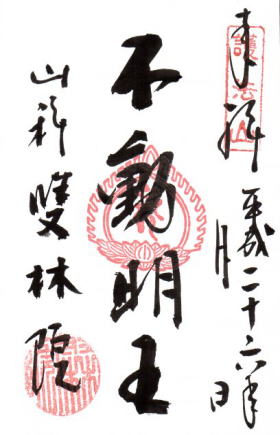 奉拝 平成二十六年 月 日
不動明王
山科 雙林院